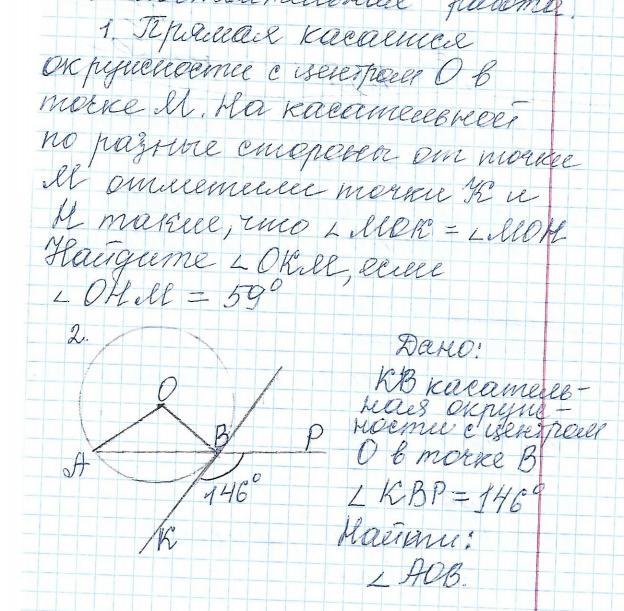 работа.
1. Прямая касается
окружности с центром О в
точке М. На касательной
по разные стороны от точки
М отметили точки К и
Н такие, что ∠МОК = ∠МОН
Найдите ∠ОКМ, если
∠ОНМ = 59°
2.
О
А
В
Р
146°
К
Дано:
КВ касатель-
ная окруж-
ности с центром
О в точке В
∠КВР = 146°
Найти:
∠АОВ.